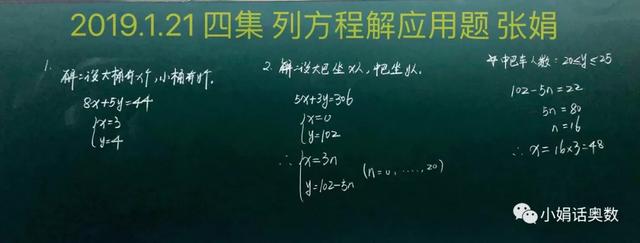 2019.1.21 四集 列方程解应用题 张娟
1.
解:设大桶有x个,小桶有y个.
8x+5y=44
{x=3
{y=4
2. 解:设大巴坐x人,中巴坐y人.
5x+3y=306
{x=0
{y=102
∴ {x=3n
{y=102-5n (n=0,....,20)
中巴车人数:20≤y≤25
102-5n=22
5n=80
n=16
∴ x=16×3=48
小娟话奥数